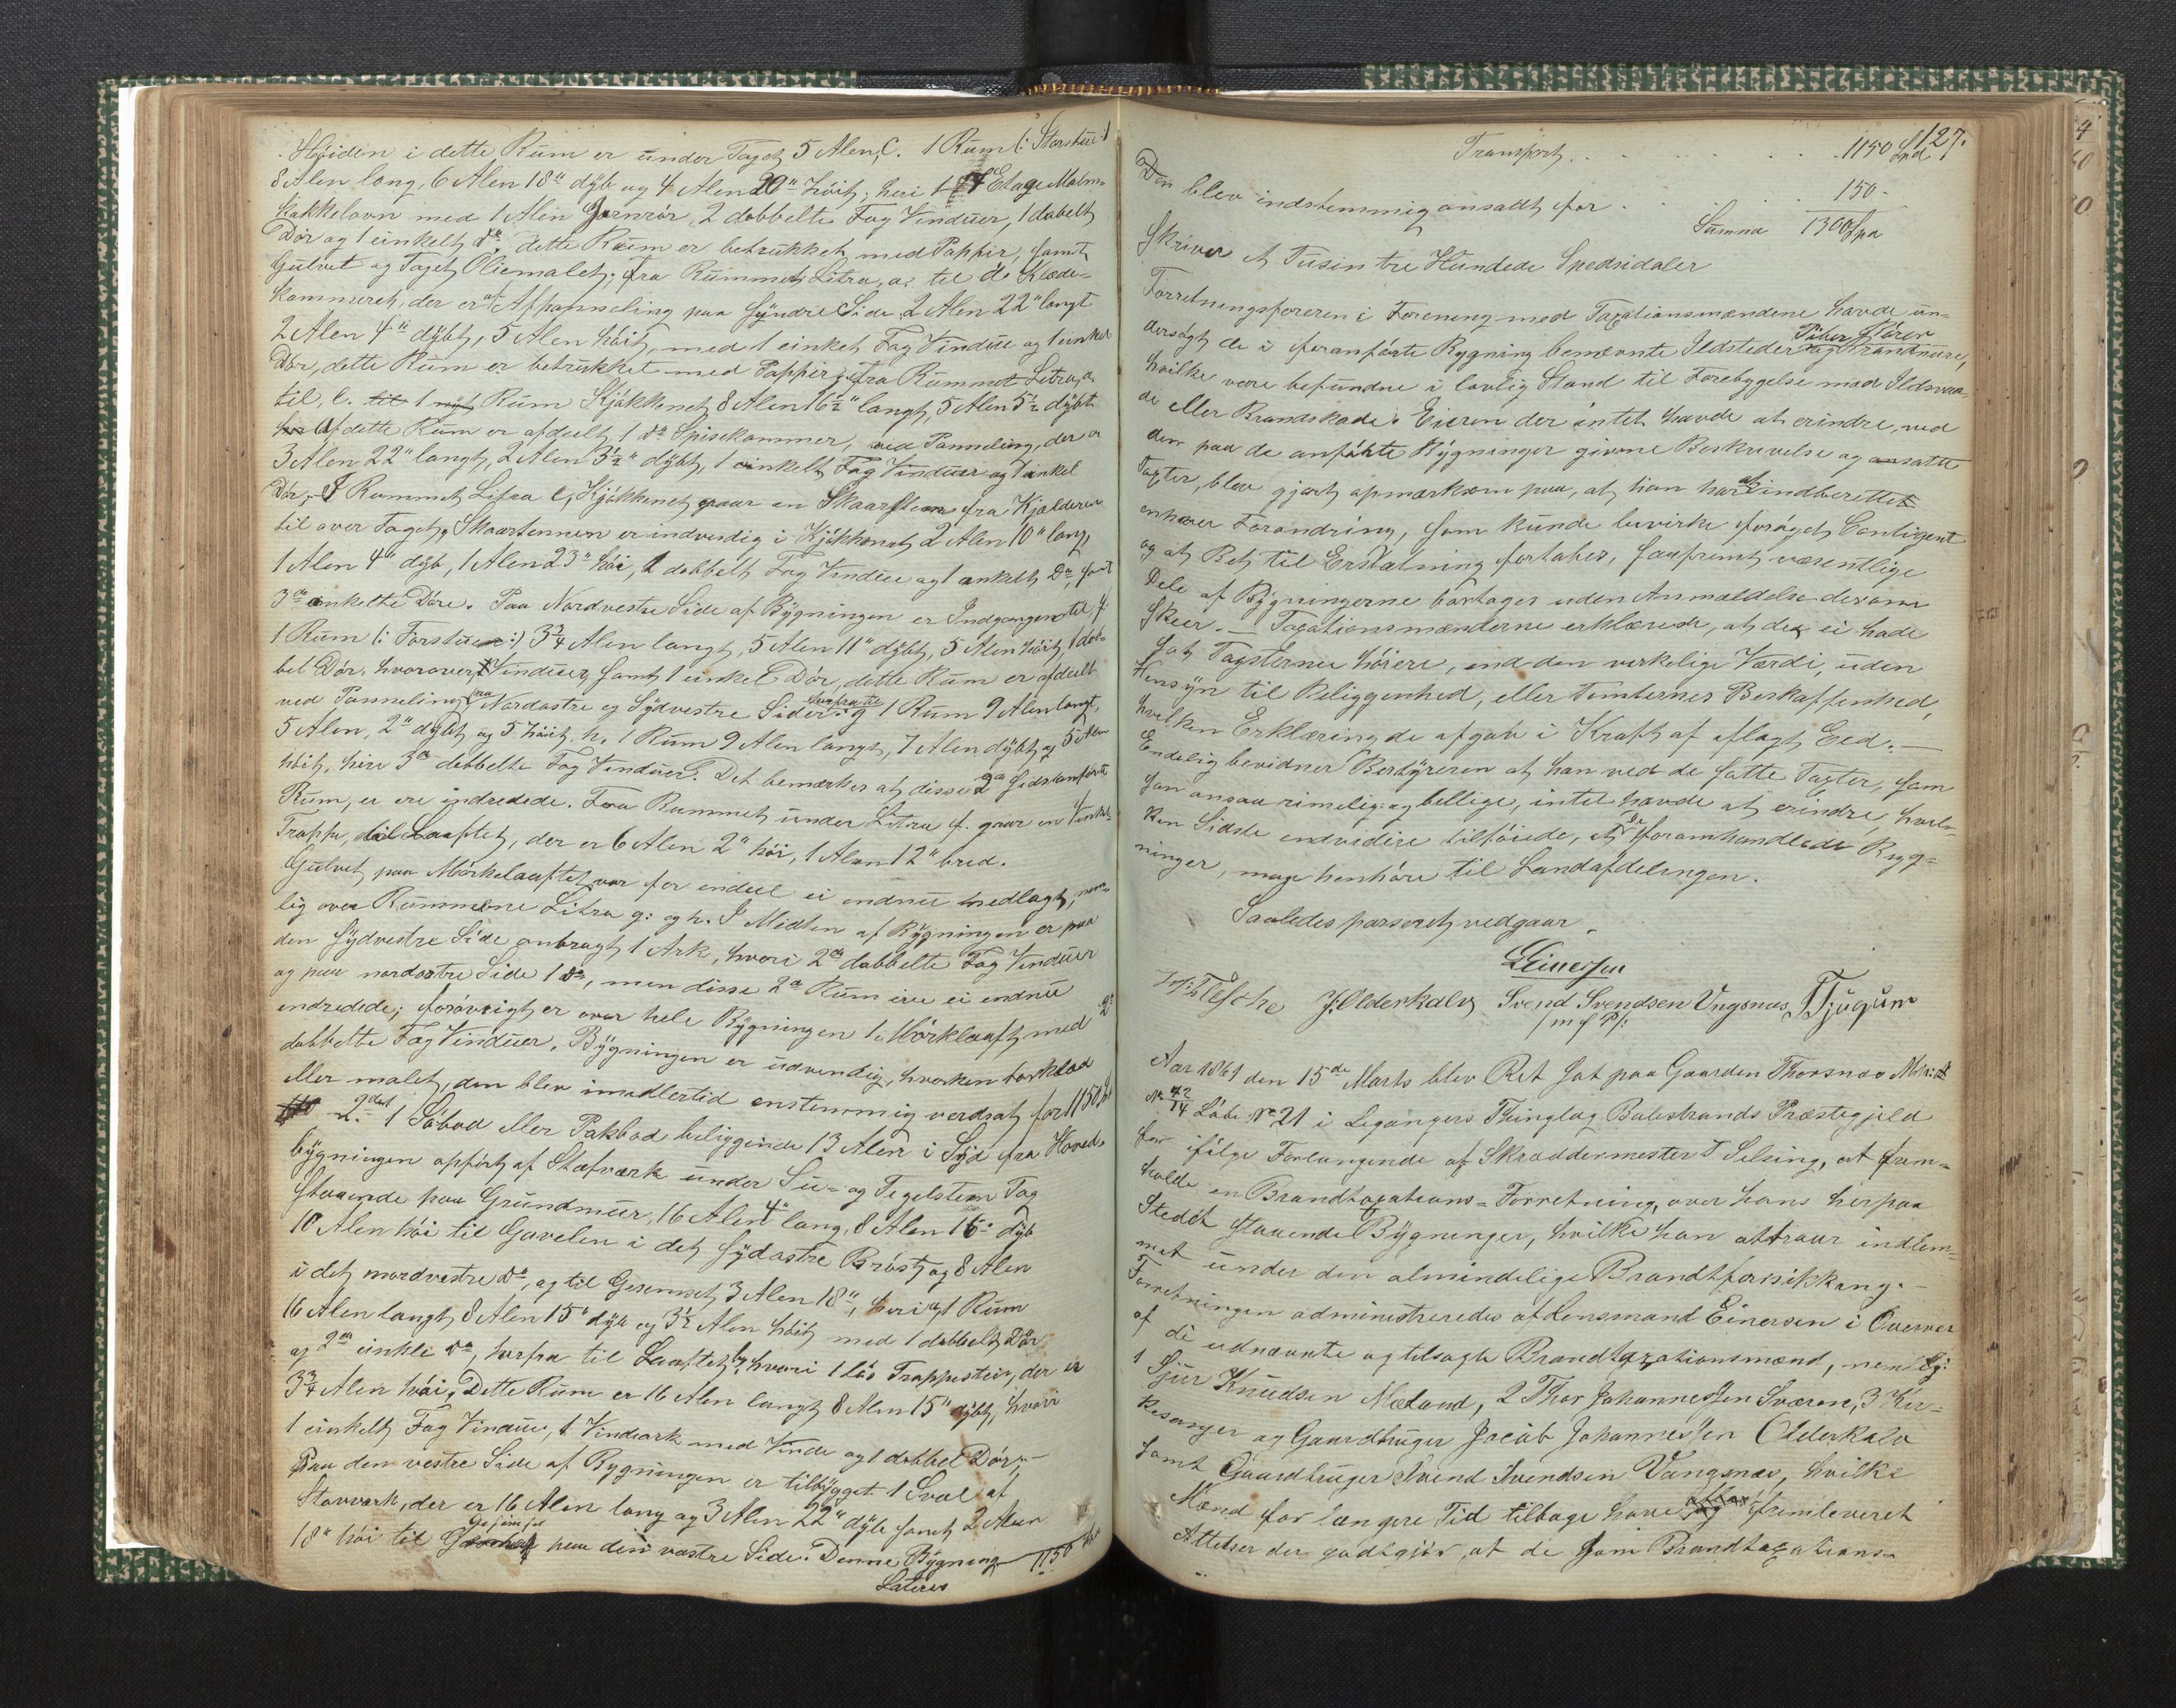 Høiden i dette Rum er under Taget 5 Alen, C. 1 Rum (: Storstue :)
8 Alen lang, 6 Alen 18" dyb og 4 Alen 20" høit; heri 1 Etage Malm-
kakkelovn med 1 Alen Jernrør, 2 dobbelte Fag Vinduer, 1 dobelt
Dør og 1 einkelt do. dette Rum er betrukket med Pappir, samt
Gulvet og Taget Oliemalet; fra Rummet Litra, a. til d. Klæde-
kammeret, der er af Afpanneling paa Syndre Side, 2 Alen 22" langt
2 Alen 4" dybt, 5 Alen høit, med 1 einkelt Fag Vindue og 1 einkel
Dør, dette Rum er betrukket med Pappir; fra Rummet Litra, a.
til, e. til 1 nyt Rum Kjøkkenet 8 Alen 16½" langt, 5 Alen 5½" dybt
Af dette Rum er afdeelt 1 do Spisekammer, ved Panneling, der er
3 Alen 22" langt, 2 Alen 3½" dybt, 1 einkelt Fag Vinduer og 1 einkel
Dør, I Rummet Litra e, Kjøkkenet gaar en Skaarsteen fra Kjælderen
til over Taget, Skaarstennen er indvendig i Kjøkkenet 2 Alen 10" lang,
1 Alen 4" dyb, 1 Alen 23" høi, 1 dobbelt Fag Vindue og 1 enkelt Do, samt
3de enkelte Døre. Paa Nordvestre Side af Bygningen er Indgangen til f.
1 Rum (: Forstuen :) 3¾ Alen langt, 5 Alen 11" dybt, 5 Alen høit, 1 dob-
bel Dør, hvorover Vinduer, samt 1 einkel Dør, dette Rum er afdeelt
ved Panneling fra Nordostre og Sydvestre Sider g 1 Rum 9 Alen langt,
5 Alen, 2" dybt og 5 høit, h. 1 Rum 9 Alen langt, 7 Alen dybt og 5 Alen
høit, heri 3de dobbelte Fag Vinduer. Det bemærkes at disse 2de sidstanførte
Rum, er ei indredede. Fra Rummet under Litra f. gaar en Vinkel-
Trappe, til Laaftet, der er 6 Alen 2" høi, 1 Alen 12" bred.
Gulvet, paa Mørkelaaftet var for endeel ei endnu nedlagt, nem-
lig over Rummene Litra g: og h. I Midten af Bygningen er paa
den sydvestre Side anbragt 1 Ark, hvori 2de dobbelte Fag Vinduer
og paa nordostre Side 1 do, men disse 2de Rum ere ei endnu
endredede; forøvrigt er over hele Bygningen 1 Mørklaaft med 2de
dobbelte Fag Vinduer. Bygningen er udvendig, hverken bordklæd
eller malet, den blev imidlertid enstemmig verdsat for 1150 Spd
2det 1 Søbod eller Pakbod beliggende 13 Alen i Syd fra Hoved-
bygningen opført af Stafværk under Su- og Tegelsteen Tag
staaende paa Grundmuur, 16 Alen 4" lang, 8 Alen 16" dyb
10 Alen høi til Gavelen i det sydostre Brøst, og 8 Alen
i det nordvestre do, og til Gesemset 3 Alen 18", heri a, 1 Rum
16 Alen langt, 8 Alen 15" dyb og 3½ Alen høit med 1 dobbelt Dør
og 2de einkle do, herfra til Laaftet b, hvori 1 løs Trappestein, der er
3¾ Alen høi; Dette Rum er 16 Alen langt 8 Alen 15" dybt, hvori
1 einkelt Fag Vindue, 1 Vindeark med Vinde og 1 dobbel Dør,
Paa den vestre Side af Bygningen er tilbygget 1 Sval af
Stavverk, der er 16 Alen lang og 3 Alen 22" dyb samt 2 Alen
18" høi til Gesimset paa den vestre Side. Denne Bygning
Lateris 1150 Spd
127.
Transport . . . . . . . 1150 Spd
Den blev indstemmig ansatt for . . . . 150 -
Summa 1300 Spd
Skriver et Tusin tre Hundede Spedsidaler
Forretningsføreren i Forening med Taxationsmændene havde un-
dersøgt de i foranførte Bygning benævnte Ildsteder Piber Rører og Brandmure,
hvilke vare befundne i lovlig Stand til Forebyggelse mod Ildsvaa-
de eller Brandskade. Eieren der intet havde at erindre, ved
den paa de anførte Bygninger givne Beskrivelse og ansatte
Taxter, blev gjort opmærksom paa, at han har at indberettet
enhver Forandring, som kunde bevirke forøget Contigent
og at Ret til Erstatning fortabes, saafremt væsentlige
Dele af Bygningerne bortages uden Anmældelse derom
Skeer. — Taxationsmænderne erklærede, at de ei hade
sat Taxsterne høiere, end den verkelige Værdi, uden
Hensyn til Beliggenhed, eller Tomternes Beskaffenhed,
hvilken Erklæring de afgab i Kraft af aflagt Eed. —
Endelig bevidner Bestyreren at han ved de satte Taxter, som
han ansaa rimelige og bellige, intet havde at erindre, hvil-
ken Sidste endvidere tilføiede, at de foramhandlede Byg-
ninger, maa henhøre til Landafdelingen.
Saaledes passeret vedgaar.
LEinersen
Tesche J. Olderkalv Svend Svendsen Vngsnæs Tjugum
/m f P/:
Aar 1861 den 15de Marts blev Ret sat paa Gaarden Thorsnæs Matr.
No 42/14 Løbe No 21 i Legangers Thinglag Balestrands Præstegjeld
for ifølge Forlangende af Skræddermester T Selsing, at frem-
holde en Brandtaxations-Forretning, over hans herpaa
Stedet staaende Bygninger, hvilke han attraar indlem-
met under den almindelige Brandtforsikkring. —
Forretningen administreredes af Lensmand Einersen i Overver
af de udnævnte og tilsagte Brandtaxationsmænd, nemlig:
1 Sjur Knudsen Mæland, 2 Thor Johannessen Sværen, 3 Kir-
kesanger og Gaardbruger Jacob Johannessen Olderkalv
samt Gaardbruger Svend Svendsen Vangsnæs, hvilke
Mænd for længere Tid tilbage have fremleveret
Attelser der godtgjør, at de som Brandtaxations-